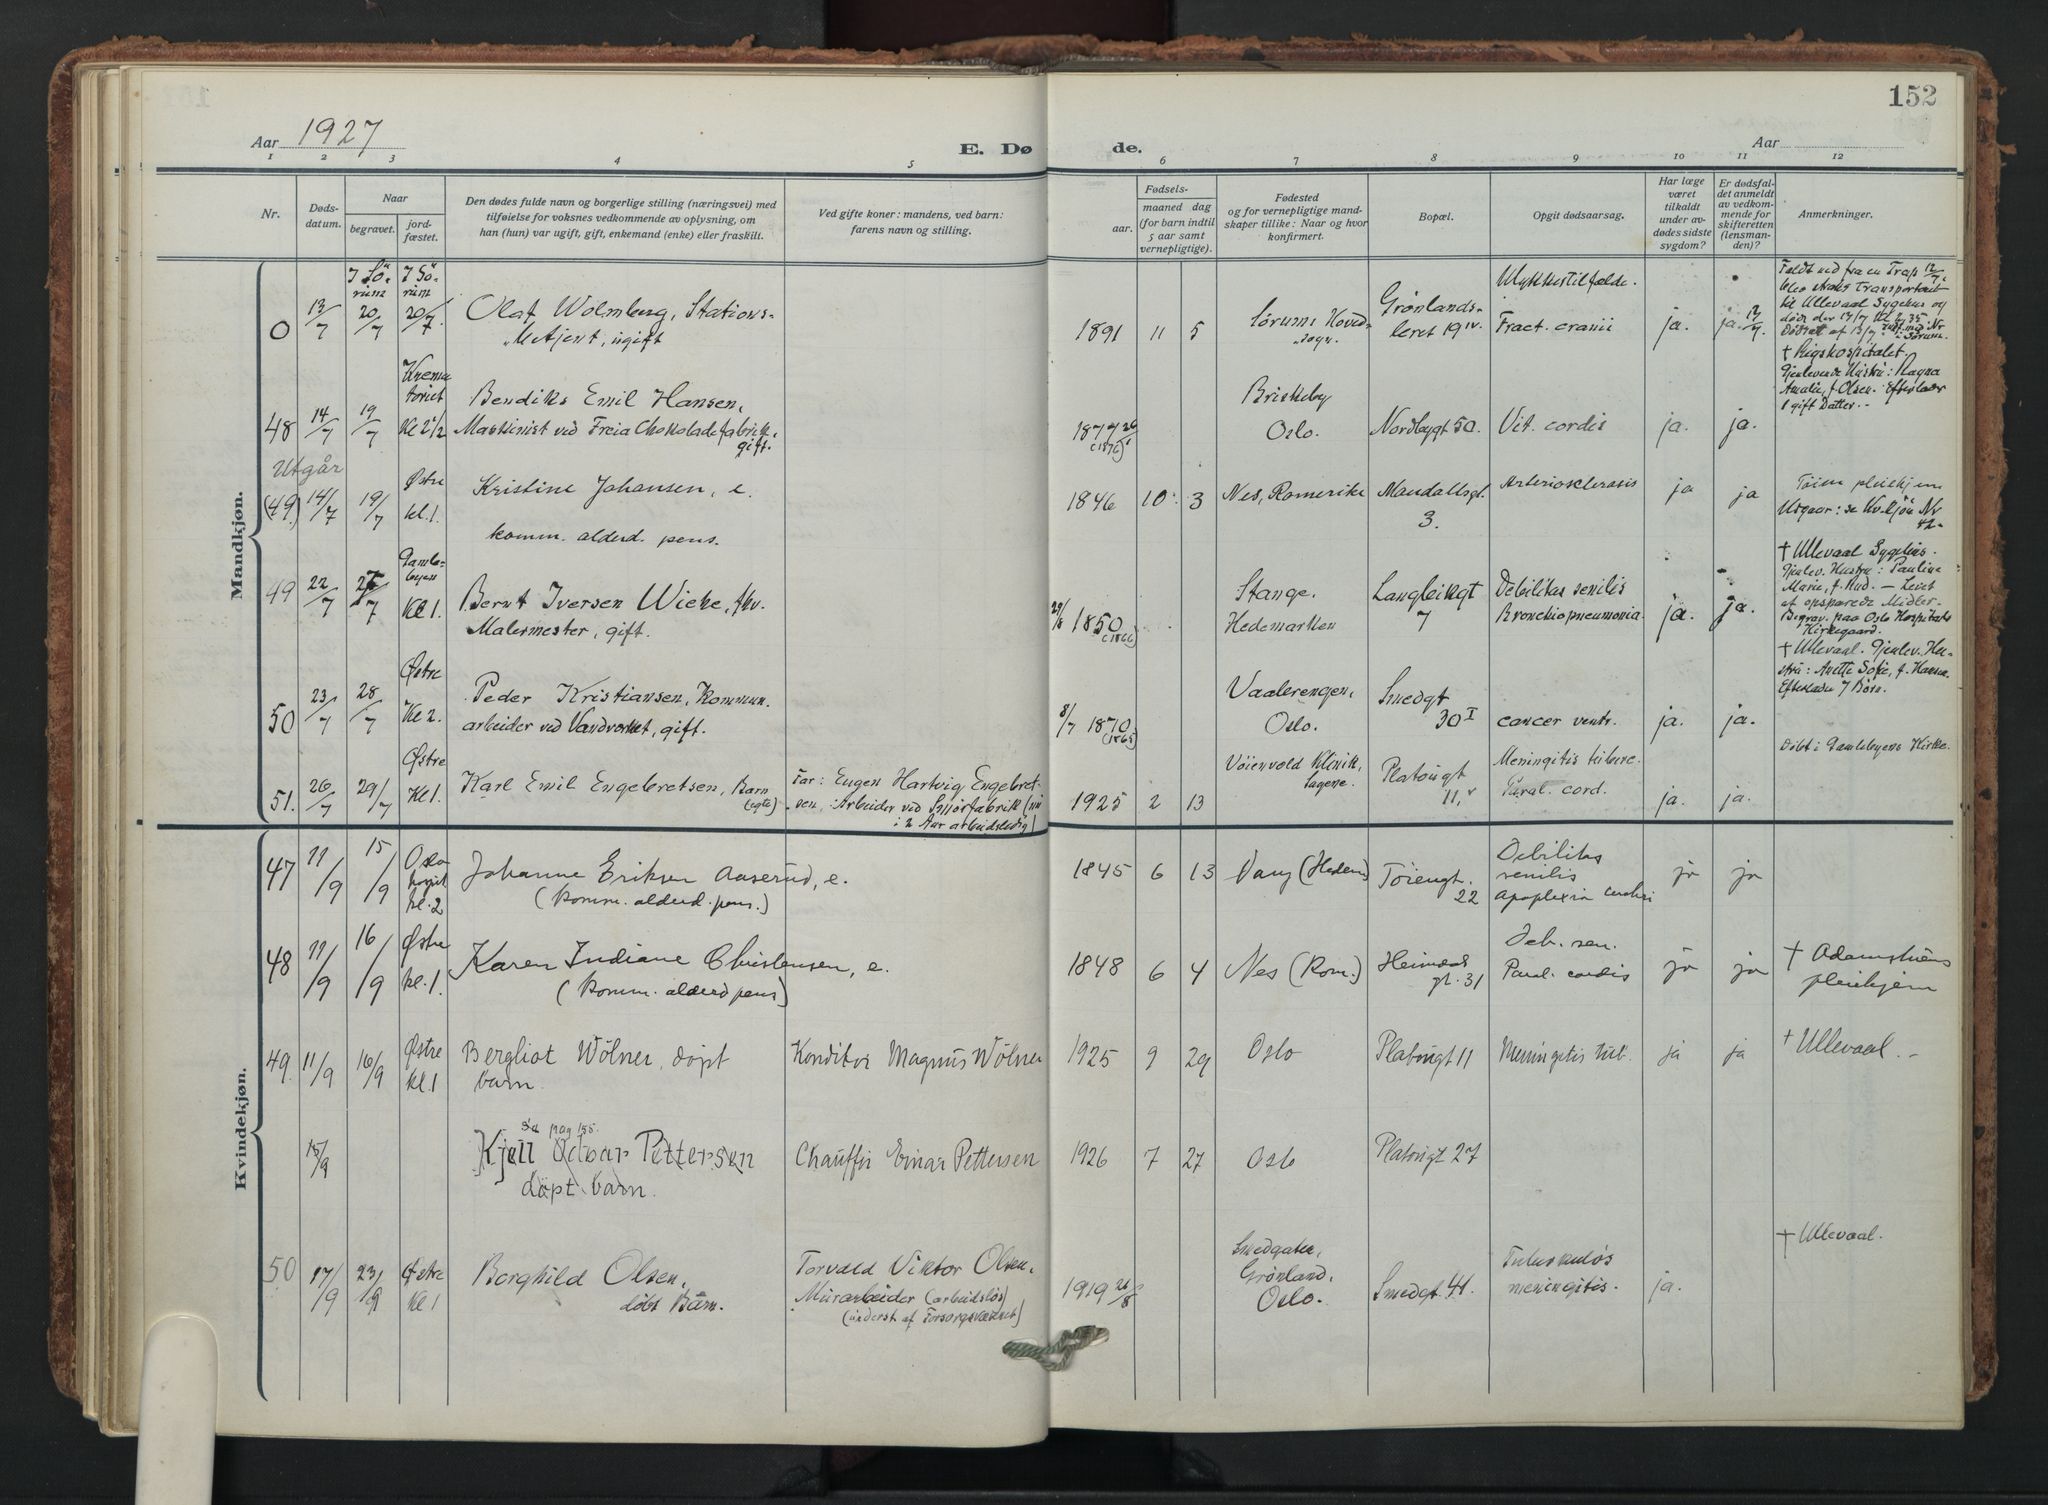 152
Aar 1927
E. Døde.
Aar
1 2 3 4 5 6 7 8 9 10 11 12
Nr.
Døds-
datum.
Naar
begravet.
jord-
fæstet.
Den dødes fulde navn og borgerlige stilling (næringsvei) med
tilføielse for voksnes vedkommende av oplysning, om
han (hun) var ugift, gift, enkemand (enke) eller fraskilt.
Ved gifte koner: mandens, ved barn:
farens navn og stilling.
Fødsels-
aar.
maaned dag
(for barn indtil
5 aar samt
vernepligtige).
Fødested
og for vernepligtige mand-
skaper tillike: Naar og hvor
konfirmert.
Bopæl.
Opgit dødsaarsag.
Har læge
været
tilkaldt
under av-
dødes sidste
sygdom?
Er dødsfal-
det anmeldt
av vedkom-
mende for
skifteretten
(lensman-
den)?
Anmerkninger.
Mandkjøn.
0 13/7 I Sö-
rum 20/7 I Sö-
rum 20/7. Olaf Wolmberg, Stations-
Betjent, ugift 1891 11 5 Sørums Hoved-
sogn. Grønlands-
leret 19 IV. Ulykkestilfælde.
Fract. cranii ja. ja. 13/7
Faldt ned fra en Trap 12/7.
blev straks Transportert
til Ullevaal Sygehus og
døde der 13/7 Kl 2,35
48 14/7 19/7 Krema
toriet Kl 2 1/2 Bendiks Emil Hansen,
Maskinist ved Freia Chokoladefabrik,
gift. 1877 (1876) Briskeby
Oslo. Nordbygt 50. Vit. cordis ja. ja.
† Rigshospitalet.
Gjenlevende Hustru: Ragna
Amalie, f. Olsen. Efterlader
1 gift Datter. -
Utgår
(49.) 14/7 19/7 Østre
kl. 1. Kristine Johansen, e.
komm. alderd. pens. 1846 10 3 Nes, Romerike Mandallsgt.
3. Arteriosklerosis ja ja Töien pleiehjem
Utgaar: se Kv.kjön Nr
42-
49 22/7 27/7 Gamle-
byen
Kl 1. Bernt Iversen Wicke, fhv.
Malermester, gift. 29/8 1850 (1866) Stange.
Hedemarken Langleikgt
7 Debilitas senilis
Bronchiopneumonia. ja. ja.
† Ullevaal Sygehus.
Gjenlev. Hustru: Pauline
Marie, f. Rud. - Levet
af opsparede Midler-
Begrav. paa Oslo Hospitals
Kirkegaard.
50 23/7 28/7 Østre
Kl 2. Peder Kristiansen, Kommun.
arbeider ved Vandverket, gift. 8/7 1870 (1865) Vaalerengen,
Oslo. Smedgt
30 I cancer ventr. ja. ja.
† Ullevaal. Gjenlev. Hu-
stru: Anette Sofie, f. Hansen.
Efterlader 7 Børn.
51. 26/7 29/7 Østre
Kl 1. Karl Emil Engebretsen, Barn
(egte) Far: Eugen Hartvig Engebret-
sen, Arbeider ved Smørfabrik (nu
i 2 Aar arbeidsledig) 1925 2 13 Vöienvold Klinik,
Sagene. Platougt
11, V Meningitis tuberc.
Paral. cord. ja. ja. Døbt i Gamlebyens Kirke.
Kvindekjøn.
47 11/9 15/9 Oslo
hospit
kl. 2 Johanne Eriksen Aaserud, e.
(komm. alderd. pens.) 1845 6 13 Vang (Hedem) Töiengt.
22 Debilitas
senilis
apoplexia cerebri ja ja
48 11/9 16/9 Østre
kl. 1. Karen Indiane Christensen, e.
(komm. alderd pens) 1848 6 4 Nes (Rom.) Heimdals
gt. 31 Deb. sen.
Paral. cordis ja ja † Adamstuens
pleiehjem
49. 11/9 16/9 Østre
kl. 1 Bergliot Wölner, döpt
barn. Konditor Magnus Wölner 1925 9 29 Oslo Platougt 11 Meningitis tub. ja ja † Ullevaal. -
15/9 se pag 155.
Kjell Edvar Pettersen
döpt barn. Chauffør Einar Pettersen 1926 7 27 Oslo Platougt 27
50 17/9 23/9 Østre
Kl 1 Borghild Olsen,
döbt Barn. Torvald Viktor Olsen,
Murarbeider (arbeidsløs)
(underst. af Forsorgsvæsenet) 1919 26/8 Smedgaten,
Grönland,
Oslo. Smedgt. 41. Tuberkuløs
meningitis. ja. † Ullevaal.